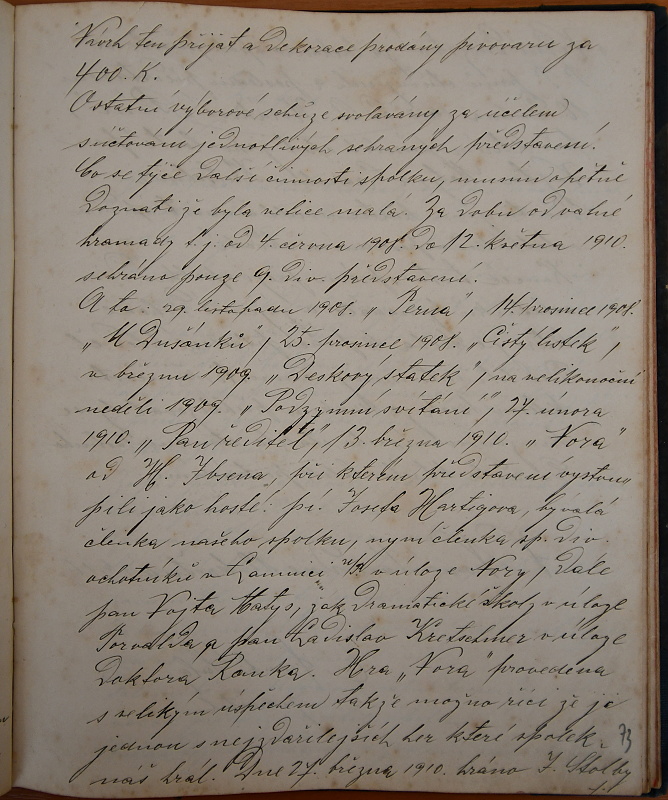 Návrh ten přijat a dekorace prodány pivovaru za
400. K.
Ostatní výborové schůze svolávány za účelem
súčtování jednotlivých sehraných představení.
Co se týče další činnosti spolku, musím opětně
doznati že byla velice malá. Za dobu od valné
hramady t. j. od 4. června 1908. do 12. května 1910.
sehráno pouze 9. div. představení.
A to: 29. listopadu 1908. „Perna", 14. prosince 1908.
„U Dušánků", 25. prosince 1908. „Čistý lístek",
v březnu 1909. „Deskový statek", na velikonoční
neděli 1909. „Podzymní svítání", 27. února
1910. „Pan ředitel" 13. března 1910. „Nora"
od H. Ibsena, při kterém představení vystou-
pili jako hosté: pí. Josefa Hartigova, bývalá
členka našeho spolku, nyní členka sp. div.
ochotníků v Lomnici n/P. v úloze Nory, dále
pan Vojta Matys, žák dramatické školy v úloze
Torvalda, a pan Ladislav Kretschmer v úloze
Doktora Ranka. Hra „Nora" provedena
s velikým úspěchem takže možno říci že je
jednou s nejzdařilejších her které spolek
náš hrál. Dne 27. března 1910. hráno J. Štolby
73